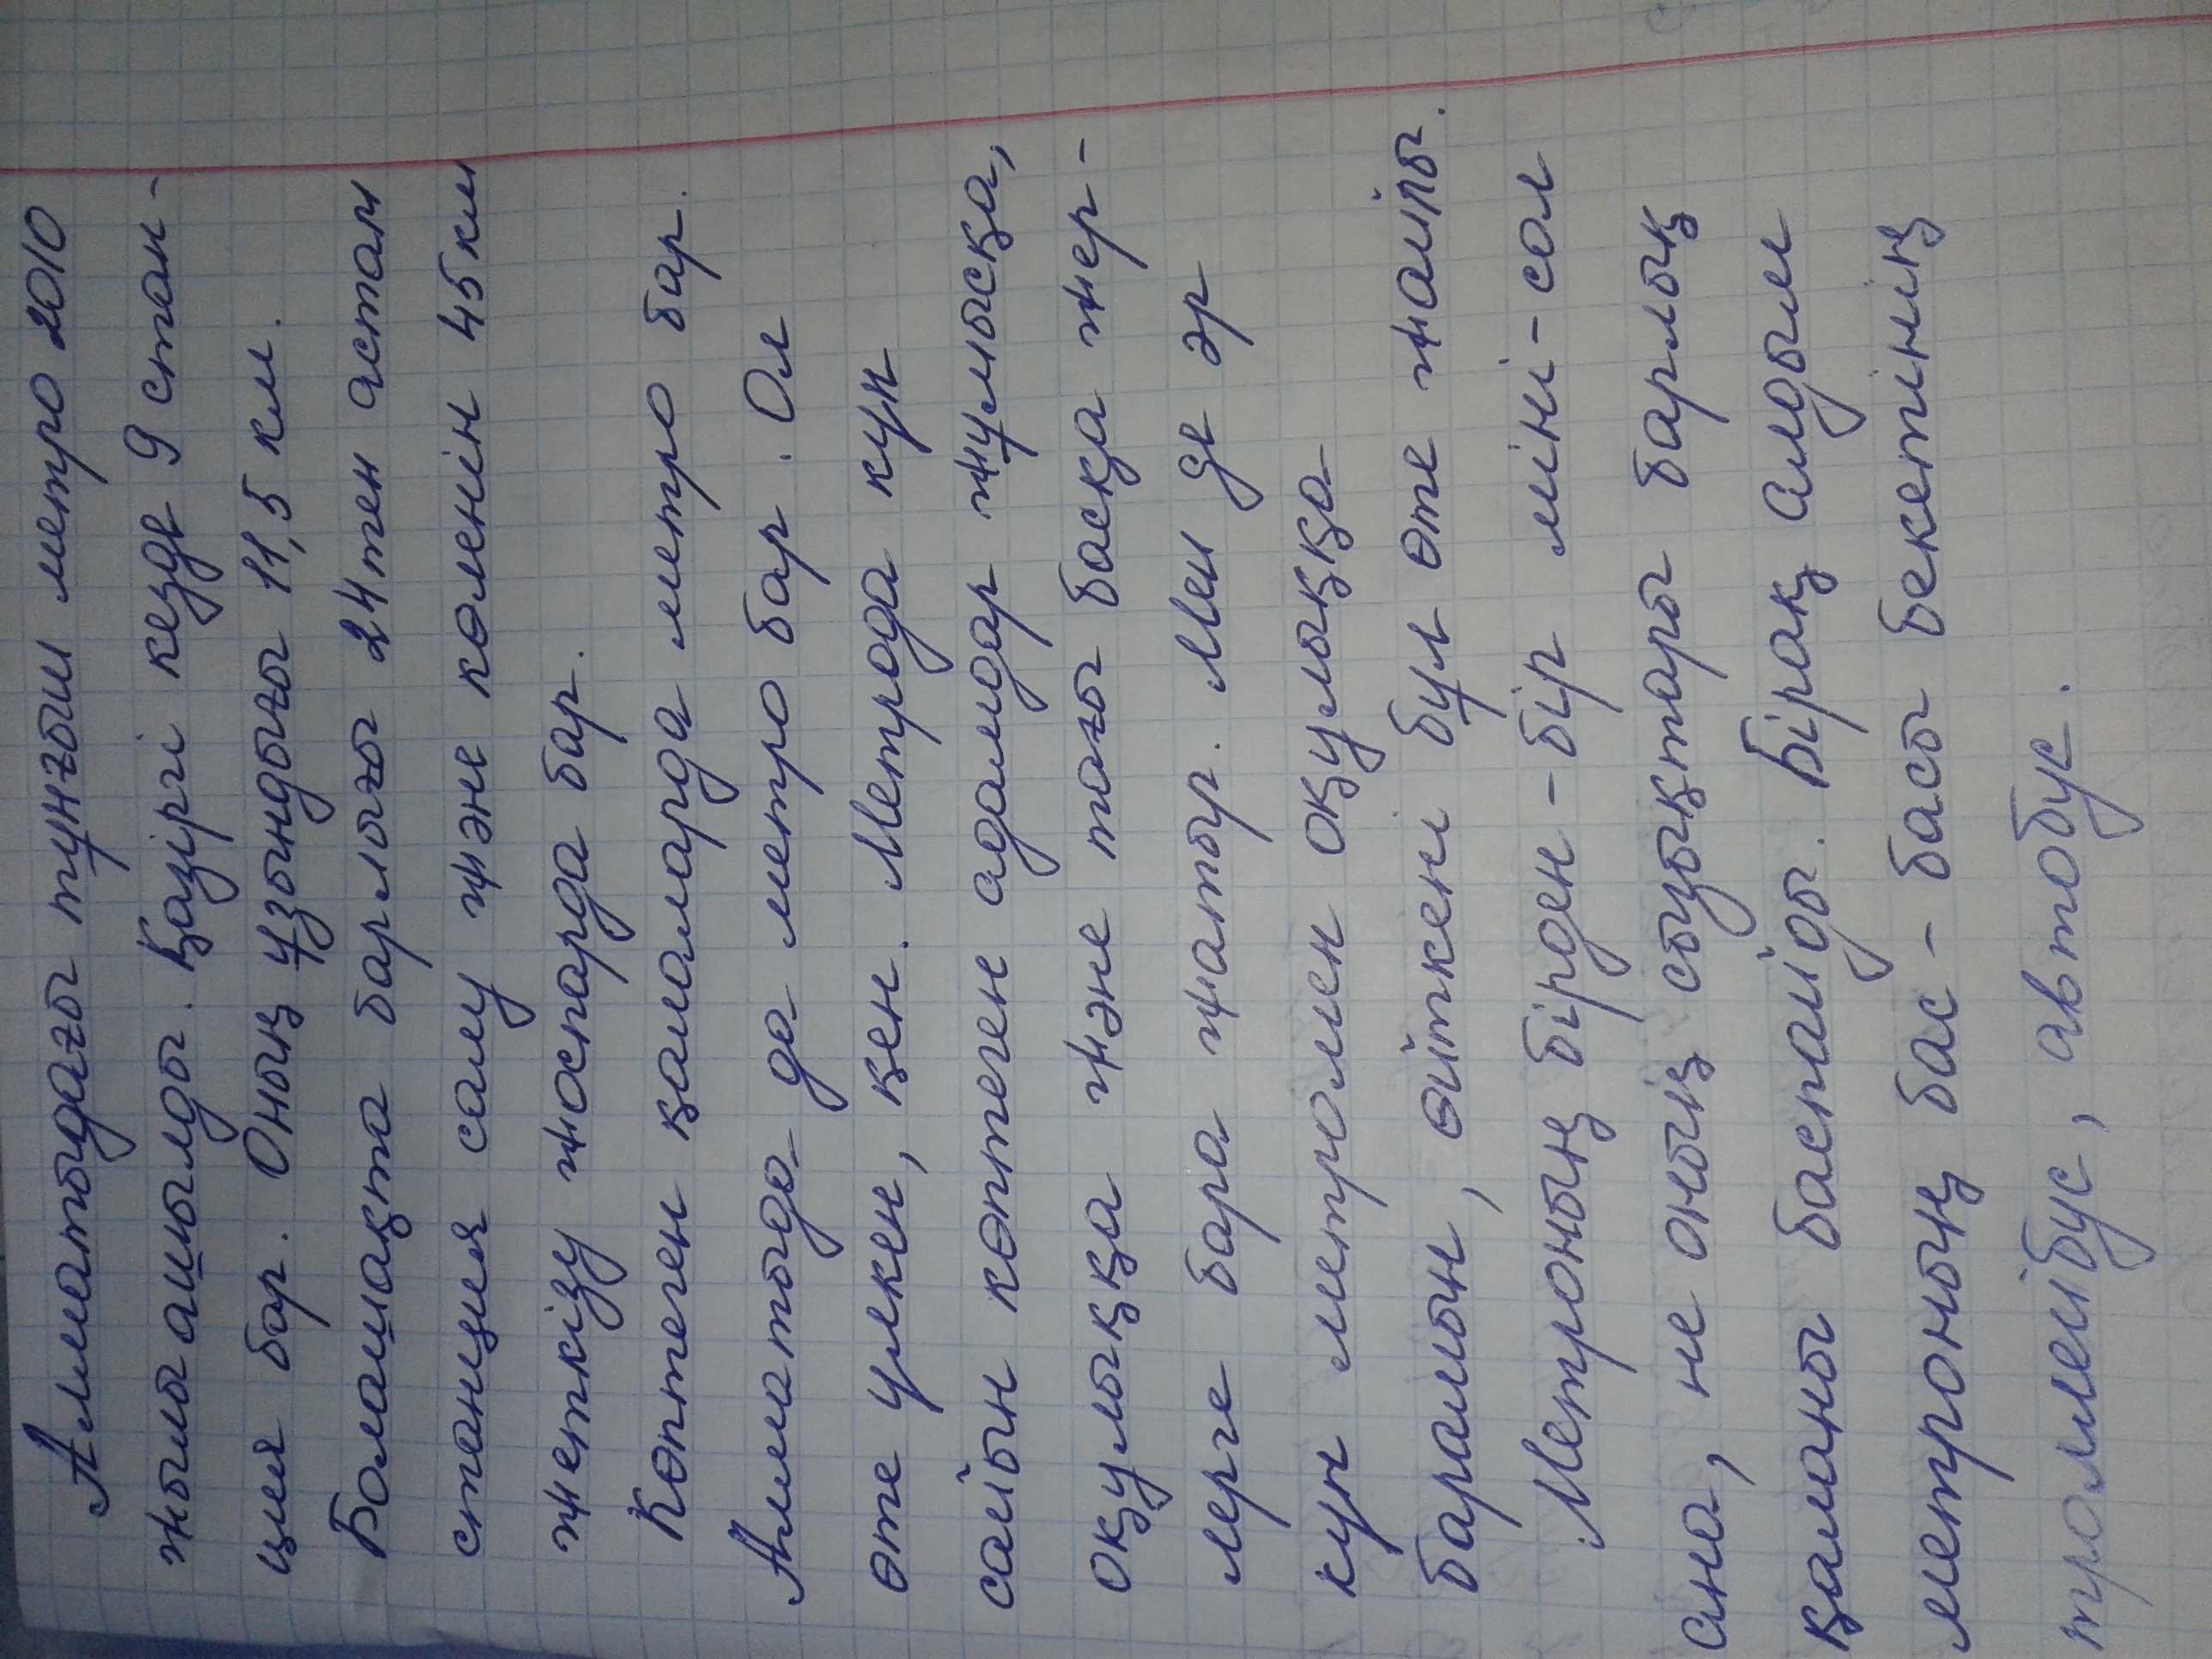 Алматыдағы тұңғыш метро 2010
жылы ашылды. Қазіргі кезде 9 стан-
ция бар. Оның ұзындығы 11,5 км.
Болашақта барлығы 24тен астам
станция салу және көлемін 45км
жеткізу жоспарда бар.
Көптеген қалаларда метро бар.
Алматыда да метро бар. Ол
өте үлкен, кең. Метрода күн
сайын көптеген адамдар жұмысқа,
оқулыққа және тағы басқа жер-
лерге бара жатыр. Мен де әр
күн метромен оқулыққа
барамын, өйткені бұл өте жайлы.
Метроның бірден-бір міні-сол
ана, не оның сызықтары барлық
қаланы баспайды. Бірақ алдым
метроның бас-басы бекетінің
троллейбус, автобус.